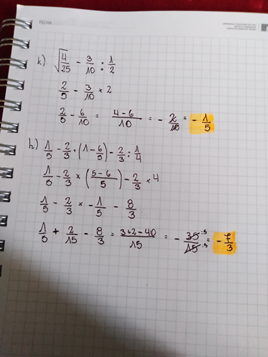 k) √4/25 - 3/10 : 1/2
2/5 - 3/10 × 2
2/5 - 6/10 = 4-6/10 = - 2/10 = - 1/5
h) 1/5 - 2/3 · (1 - 6/5) - 2/3 : 1/4
1/5 - 2/3 × (5-6/5) - 2/3 × 4
1/5 - 2/3 × - 1/5 - 8/3
1/5 + 2/15 - 8/3 = 3+2-40/15 = - 35/15 = - 7/3